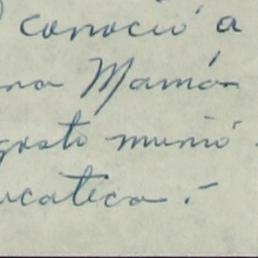 conoció a
Mamá
gosto murió
ucateca.-